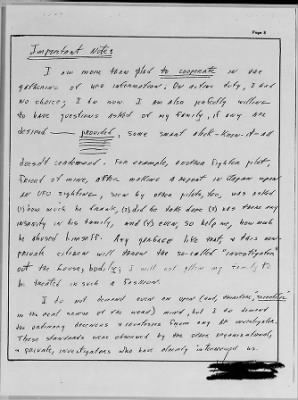 Page 8
Important Notes
I am more than glad to cooperate in the
gathering of UFO information. On active duty, I had
no choice; I do now I am also perfectly willing
to have questions asked of my family, if any are
desired — provided, some smart aleck-know-it-all
doesn't condemned. For example, another fighter pilot,
friend of mine, after making a report in Japan upon
an UFO sighting, seen by other pilots, too, was asked
(1) how much he drank, (2) did he take dope (3) was there any
insanity in his family, and (4) even, so help me, how much
he abused himself. Any garbage like that, & this now
private citizen will throw the so-called "investigator"
out the house, bodily; I will not allow my family to
be treated in such a fashion.
I do not demand even an open (and, therefore,
in the real sense of the word) mind, but I do demand
the ordinary decencies & courtesies from any AF investigator.
These standards were observed by the other organizational,
& private, investigators who have already interviewed us.